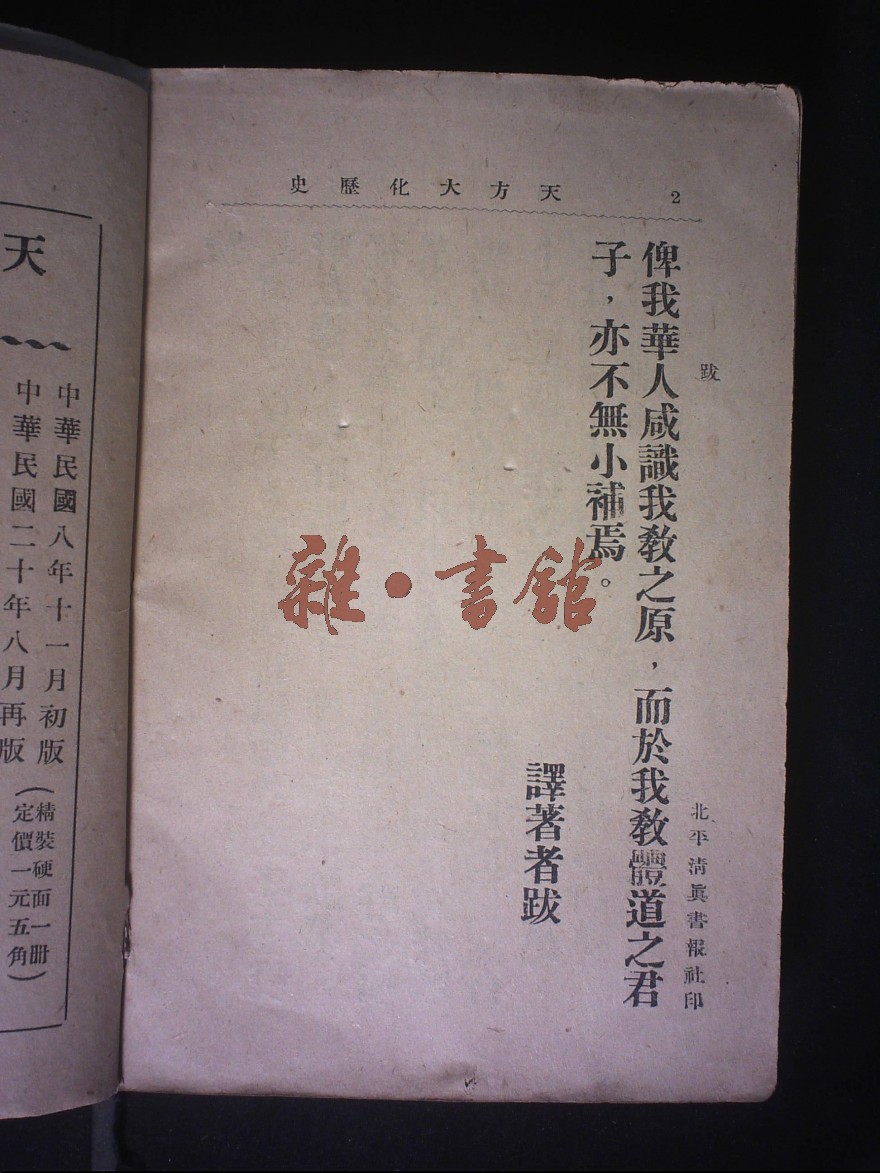 天方大化歷史
2
跋
俾我華人咸識我教之原，而於我教體道之君
子，亦不無小補焉。
譯著者跋
北平清眞書報社印
雜·書館
天
中華民國八年十一月初版
中華民國二十年八月再版
（精裝硬面一冊
定價一元五角）